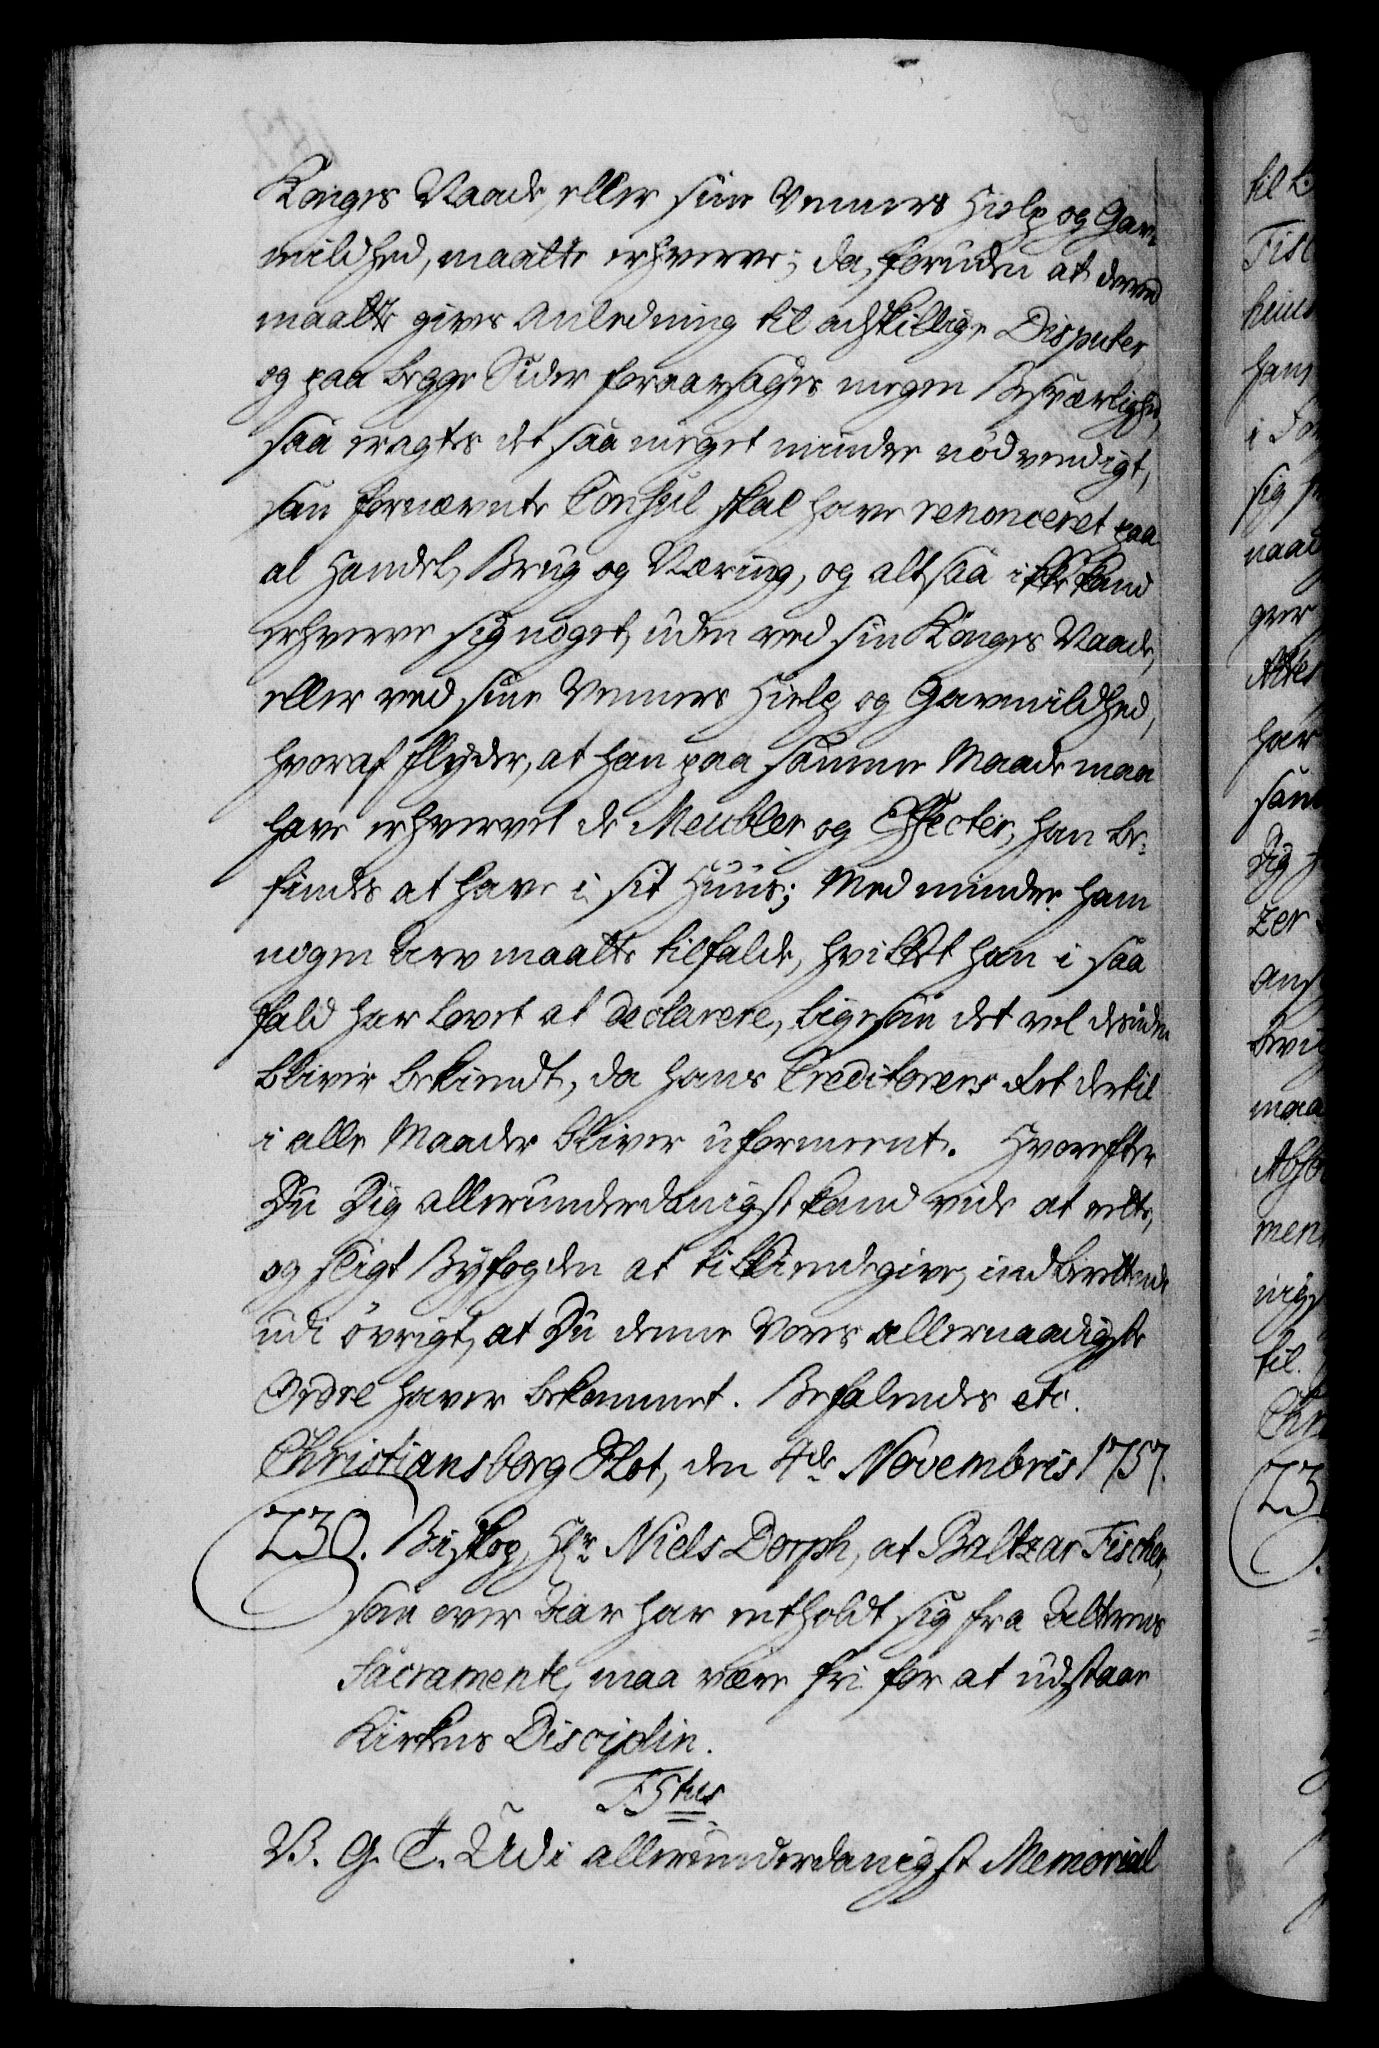 Konges Naade, eller sine Venners Hielp og Gav¬
mildhed, maatte erhverve; da, foruden at derved
maatte gives Anledning til adskillige Disputer,
og paa begge Sider foraarsages megen Besværlighed,
saa eragtes det saa meget mindre nødvendigt,
som fornævnte Consul skal have renonceret paa
al Handel, Brug og Næring, og altsaa ikke kand
erhverve sig noget, uden ved sin Konges Naade,
eller ved sine Venners Hielp og Gavmildhed,
hvoraf flyder, at han paa samme Maade maa
have erhvervet de Meubler og Effecter, han be¬
findes at have i sit Huus; Med mindre ham
nogen Arv maatte tilfalde, hvilket han i saa
fald har lovet at declarere, ligesom det vel desuden
bliver bekiendt, da hans Creditorers Ret dertil
i alle Maader bliver uformeent. Hvorefter
Du Dig allerunderdanigst kand vide at rette,
og sligt Byfogden at tilkiendegive, indberettende
udi øvrigt, at Du denne Vores allernaadigste
Ordre haver bekommet. Befalendes etc.
Christiansborg Slot, den 4de Novembris 1757.
730. Biskop, Hr. Niels Dorph, at Baltzar Fischer,
som over Aar har entholdt sig fra Alterens
Sacramente, maa være fri for at udstaae
Kirkens Disciplin.
F5tus
V. G. T. Udi allerunderdanigst Memorial